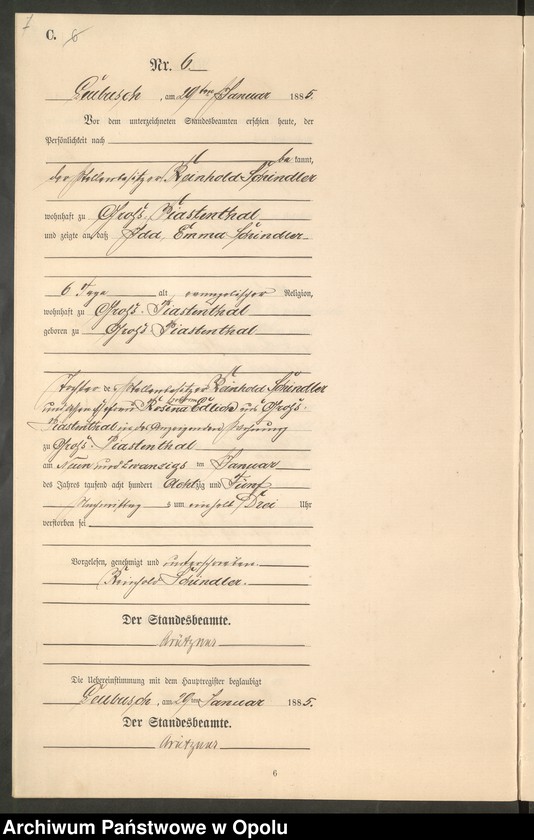 7
C. 6
Nr. 6
Leubusch, am 29ten Januar 1885.
Vor dem unterzeichneten Standesbeamten erschien heute, der
Persönlichkeit nach
bekannt,
der Stellenbesitzer Reinhold Schindler
wohnhaft zu Groß-Piastenthal
und zeigte an, daß Ida, Emma Schindler
6 Tage alt, evangelischer Religion,
wohnhaft zu Groß-Piastenthal
geboren zu Groß-Piastenthal
Tochter des Stellenbesitzer Reinhold Schindler
und dessen Ehefrau Rosina Edlich aus Groß-
Piastenthal in des Anzeigenden Wohnung
zu Groß-Piastenthal
am Neun und zwanzigs ten Januar
des Jahres tausend acht hundert Achtzig und Fünf
Nachmittag s um einhalb Drei Uhr
verstorben sei
Vorgelesen, genehmigt und unterschrieben
Reinhold Schindler.
Der Standesbeamte.
Die Uebereinstimmung mit dem Hauptregister beglaubigt
Leubusch, am 29ten Januar 1885.
Der Standesbeamte.
6
Archiwum Państwowe w Opolu